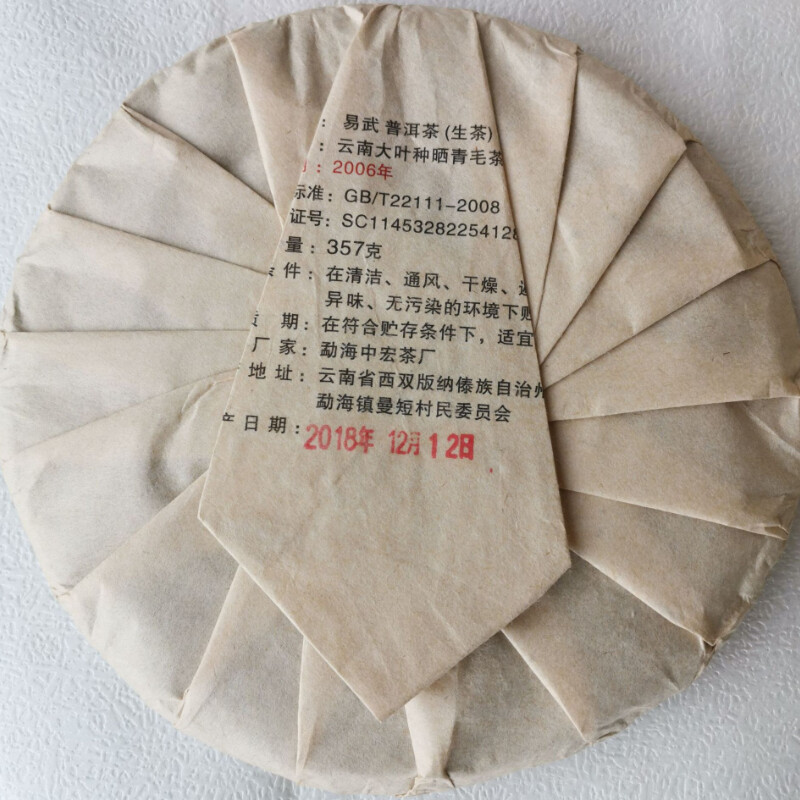 : 易武 普洱茶 (生茶)
: 云南大叶种晒青毛茶
: 2006年
标准: GB/T22111-2008
证号: SC11453282254128
量: 357克
件: 在清洁、通风、干燥、
异味、无污染的环境下贮
期: 在符合贮存条件下,适宜
厂 家: 勐海中宏茶厂
地 址: 云南省西双版纳傣族自治州
勐海镇曼短村民委员会
产日期: 2018年 12月12日